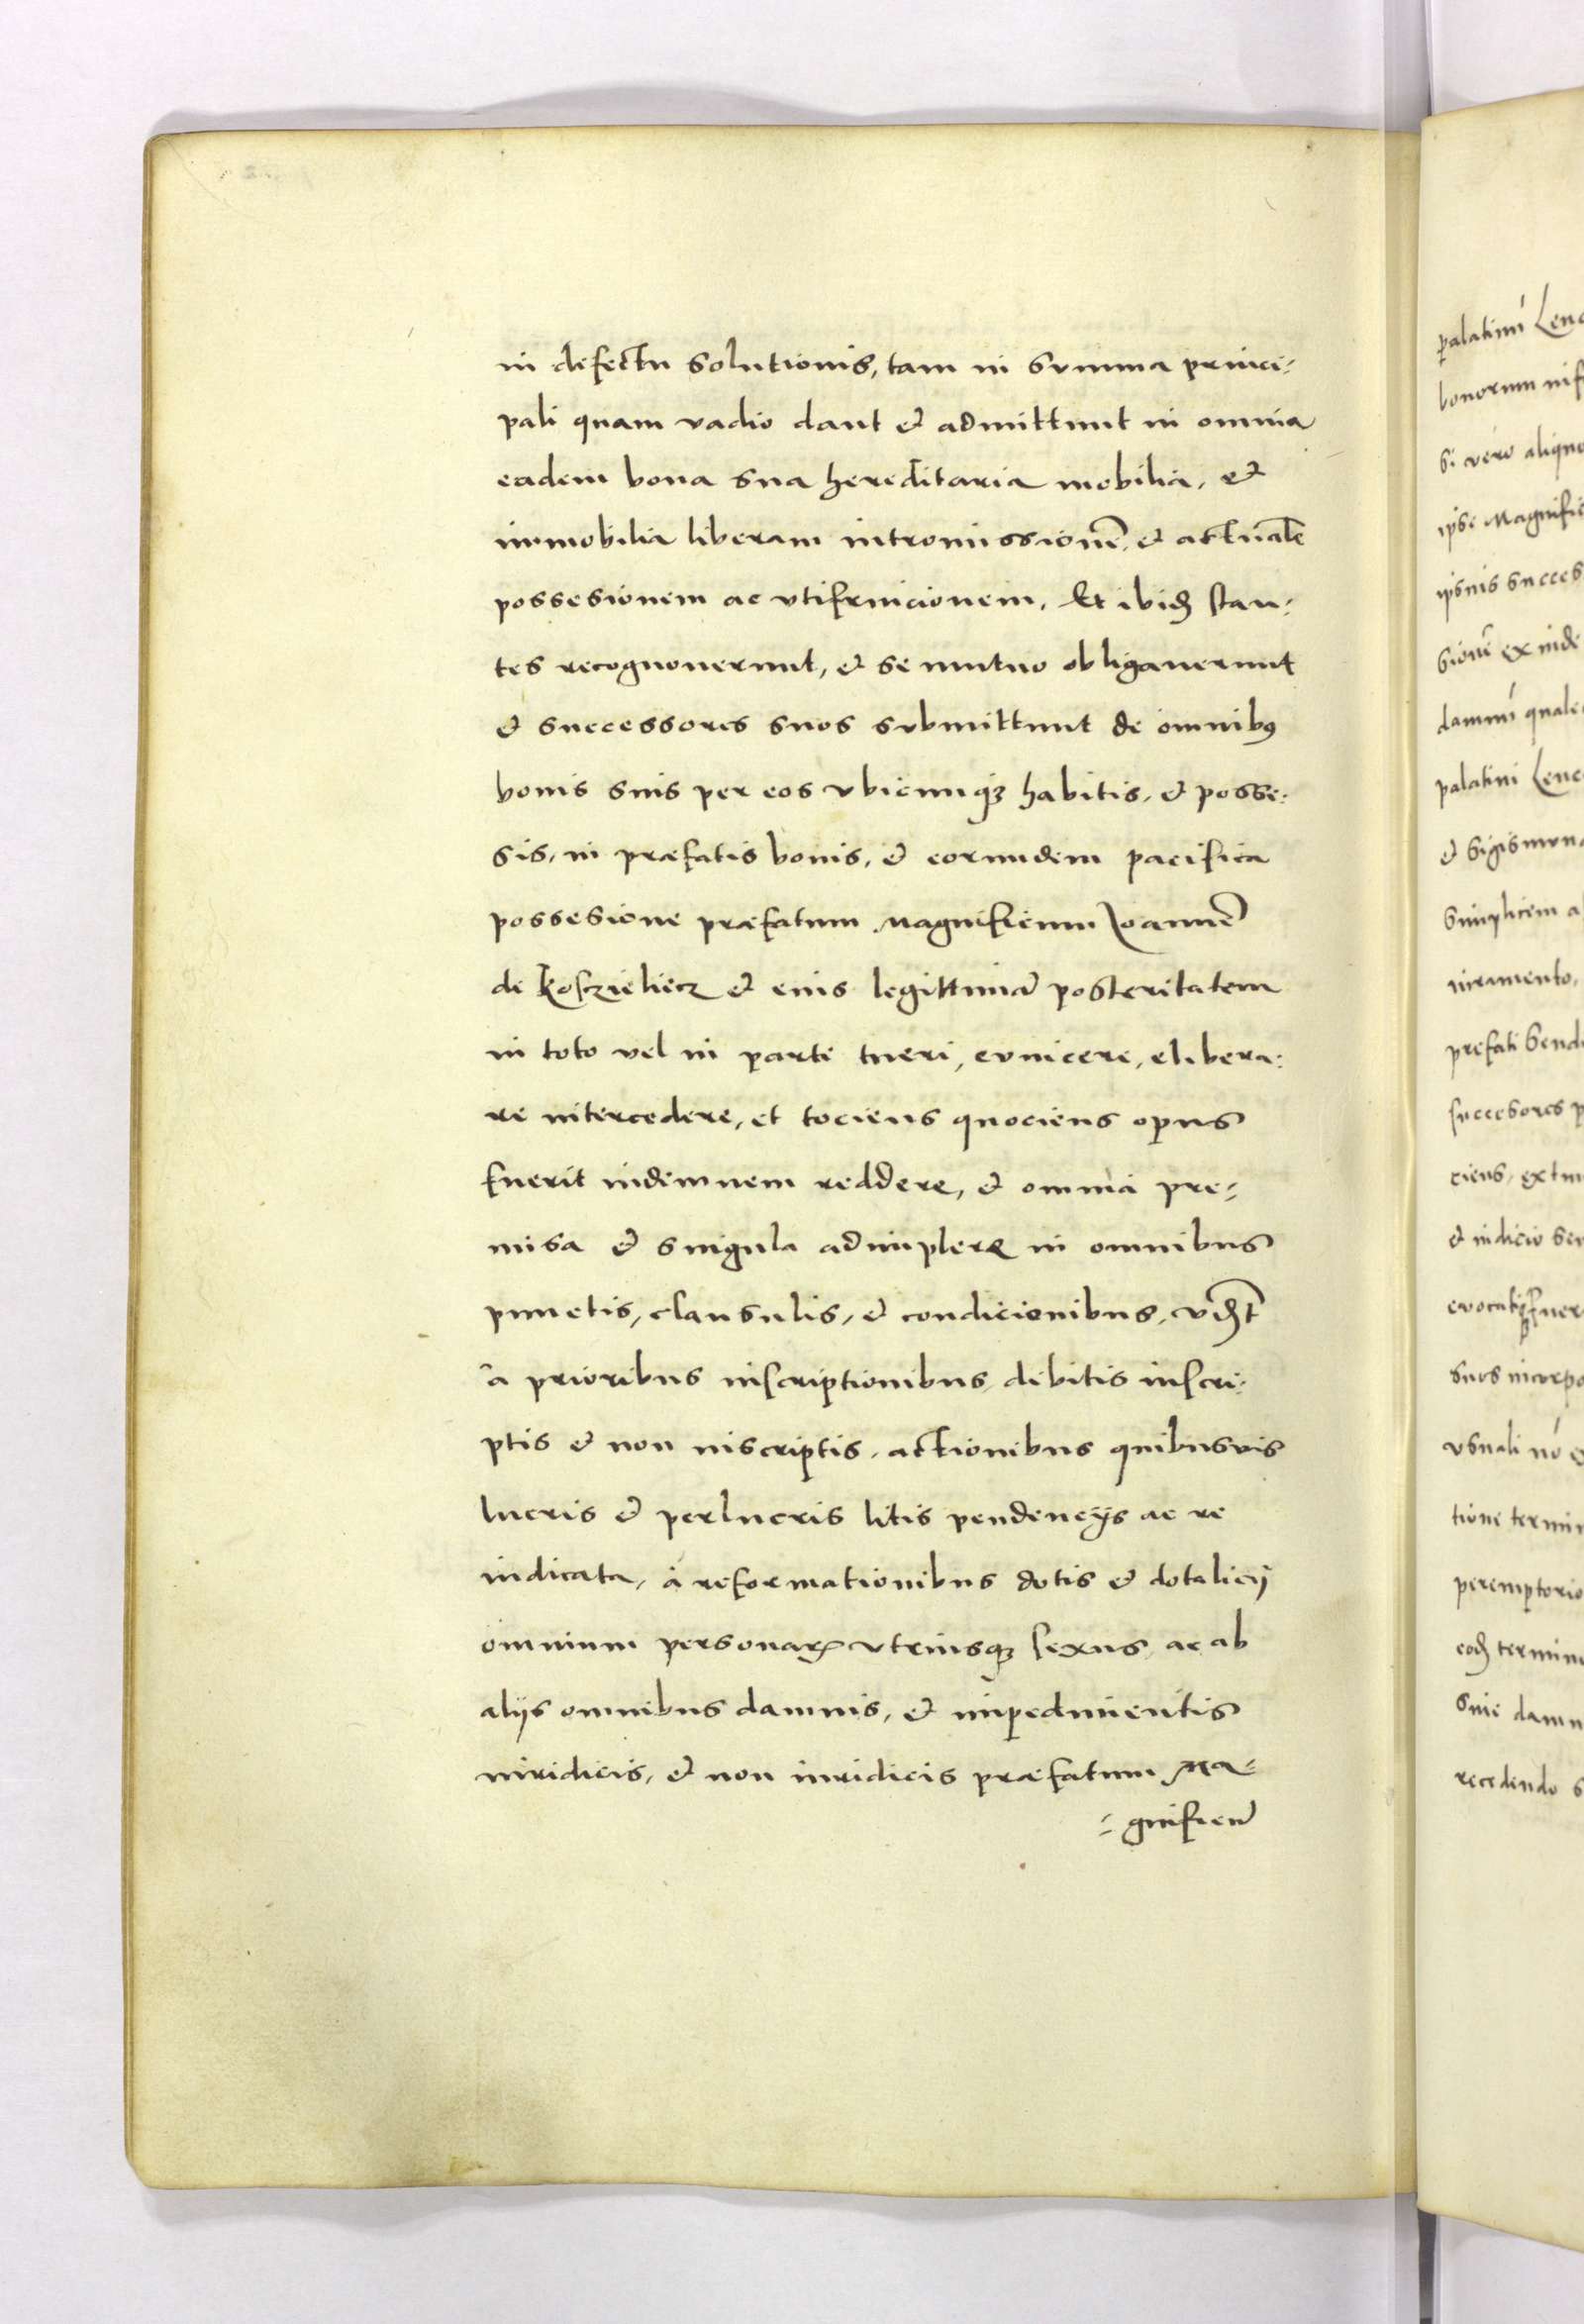 in defectu solutionis, tam in summa princi:
pali quam vadio dant et admittunt in omnia
eadem bona sua hereditaria mobilia, et
immobilia liberam intromissionē, et actualē
possesionem ac vtifruicionem. Et ibidē stan:
tes recognouerunt, et se mutuo obligauerunt
et successores suos submittunt de omnibꝯ
bonis suis per eos vbicunqꝫ habitis, et posse:
sis, in præfatis bonis, et eorundem pacifica
possesione præfatum Magnificum Ioannē
de Kosczieliecz et eius legittimā posteritatem
in toto vel in parte tueri, euincere, elibera:
re intercedere, et tociens quociens opus
fuerit indemnem reddere, et omnia pre:
misa et singula adimplere in omnibus
punctis, clausulis, et condicionibus,
à prioribus inscriptionibus, debitis inscri:
ptis et non inscriptis, actionibus quibusuis
lucris et perlucris litis pendencijs ac re
iudicata, à reformationibus dotis et dotalicij
omnium personarꝝ vtriusqꝫ sexus, ac ab
alijs omnibus damnis, et impedimentis
iuridicis, et non iuridicis præfatum Ma=
=gnificū
palatinū Lenc
bonorum
si vero aliquo
ipse Magnific
ipsius succes
sionē exinde
damnū quale
palatini Lenc
et Sigismun
Simplicem a
iuramento,
prefati Send
succesores p
ciens, extun
et iudicio
euocati fuer
suos incorpo
vsuali nō
tione termin
peremptorio
eodē termin
Sine damn
recedendo s